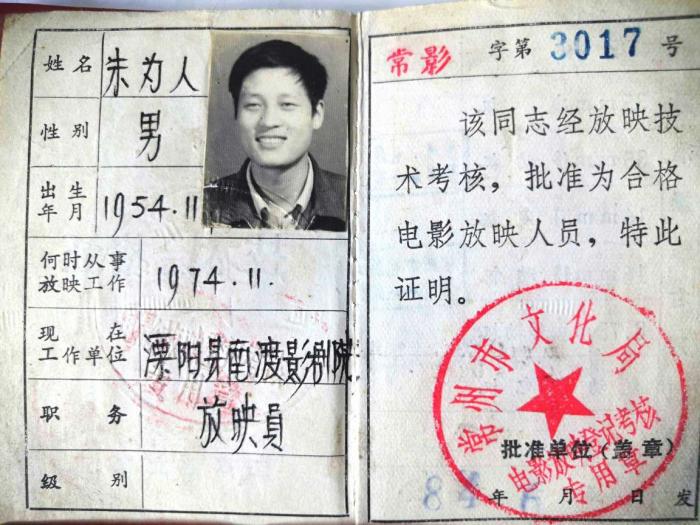 姓名 朱为人
性别 男
出生年月 1954.11
何时从事放映工作 1974.11.
现在工作单位 溧阳县南渡影剧院
职务 放映員
级别
常影 字第 3017 号
该同志经放映技
术考核，批准为合格
电影放映人员，特此
证明。
常州市文化局
电影放映登记考核
专用章
批准单位(盖章)
年 月 日发